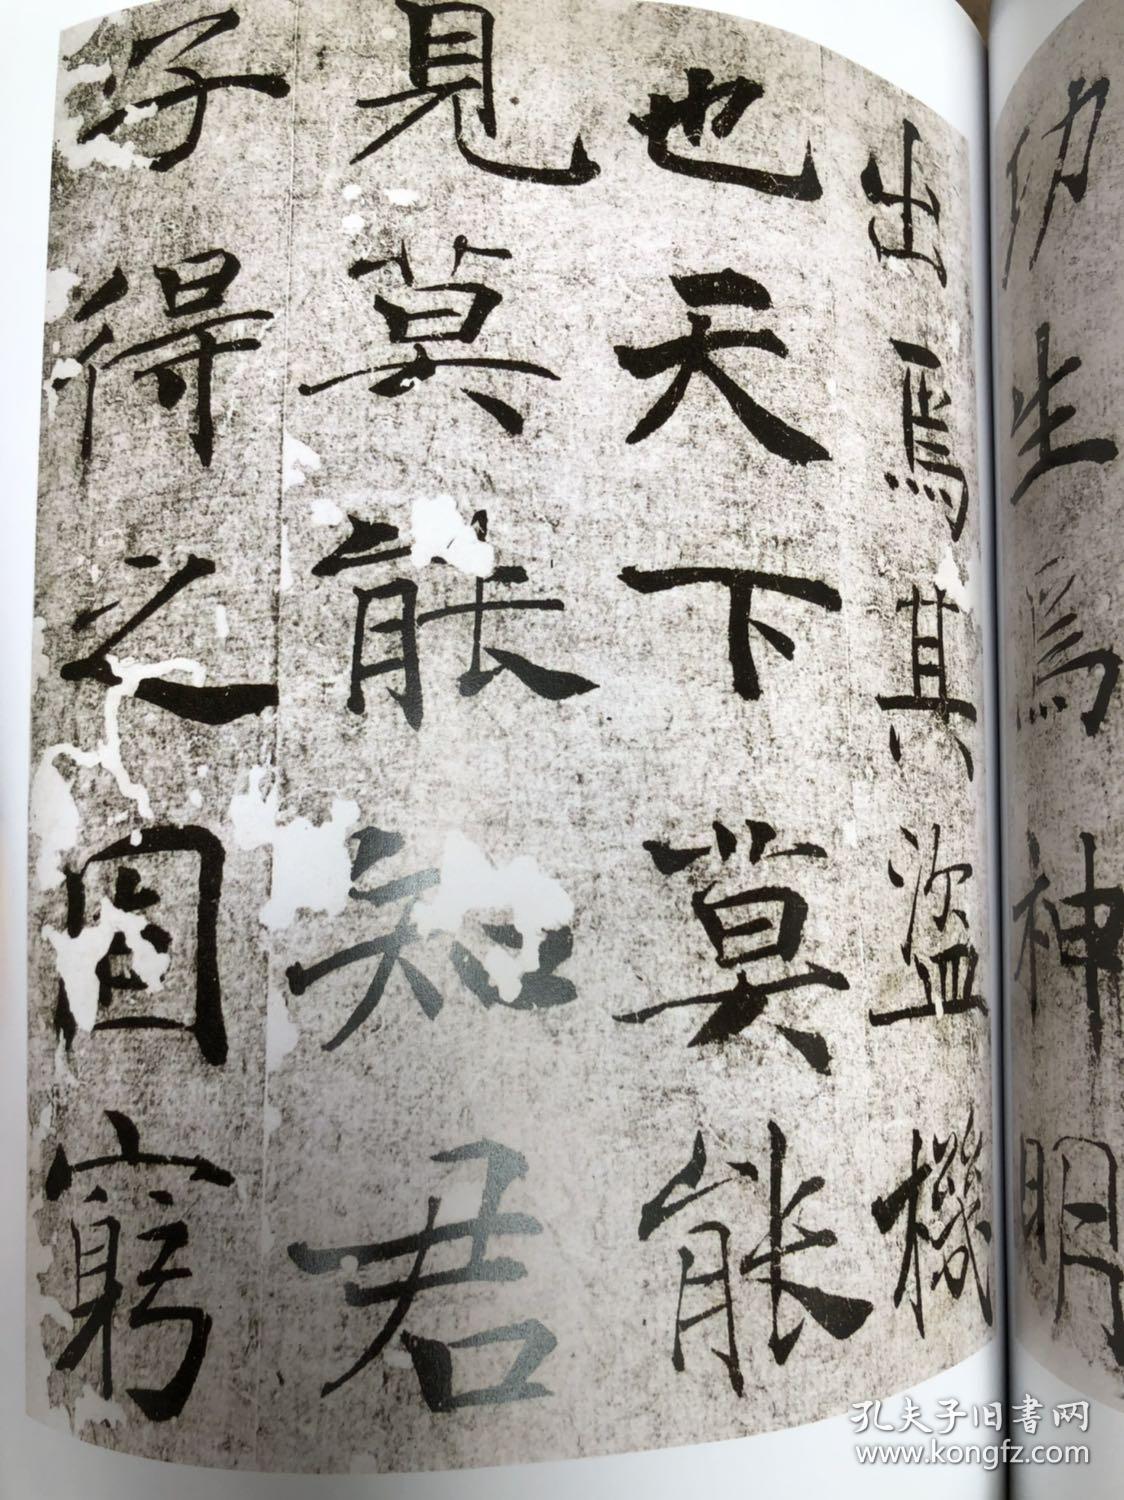 功生焉神明
出焉其盜機
也天下莫能
見莫能知君
子得之固窮
孔夫子旧書网
www.kongfz.com